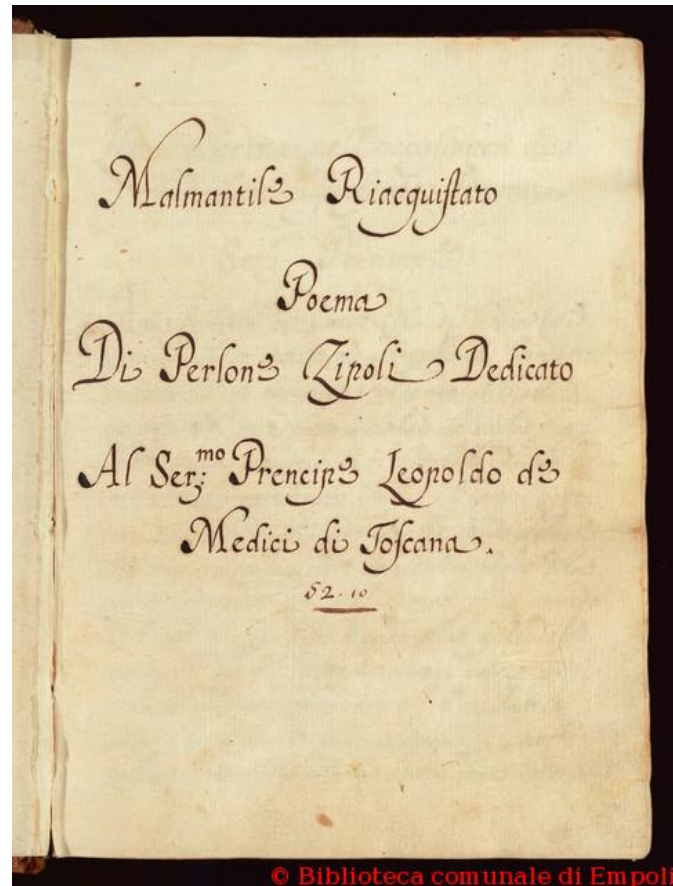 Malmantile Riacquiſtato
Poema
Di Perlone Zipoli Dedicato
Al Ser:mo Prencipe Leopoldo de
Medici di Toſcana.
52.10
© Biblioteca comunale di Empoli